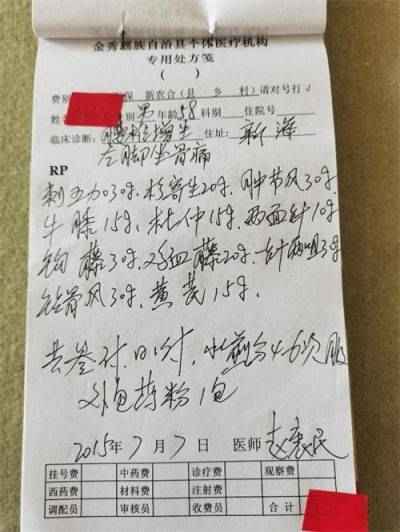 金秀瑶族自治县个体医疗机构
专用处方笺
( )
费别 保 新农合(县 乡 村)请对号打√
姓 别 男 年龄 58 科别 住院号
临床诊断: 腰椎增生 住址:
左脚坐骨痛
RP
刺五加30g. 杜寄生20g. 肿节风30g.
牛膝15g. 杜仲15g. 两面针10g
钩藤30g. 血藤20g.
风30g. 黄芪15g.
共叁付. 日1付. 水煎分4-6次服
外包 粉1包
2015年7月7日 医师
挂号费 中药费 诊疗费 观察费
西药费 材料费 注射费
调配员 审核员 收费员 合计